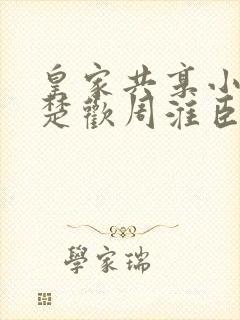 皇家共享小
楚歡周淮臣
學家瑞